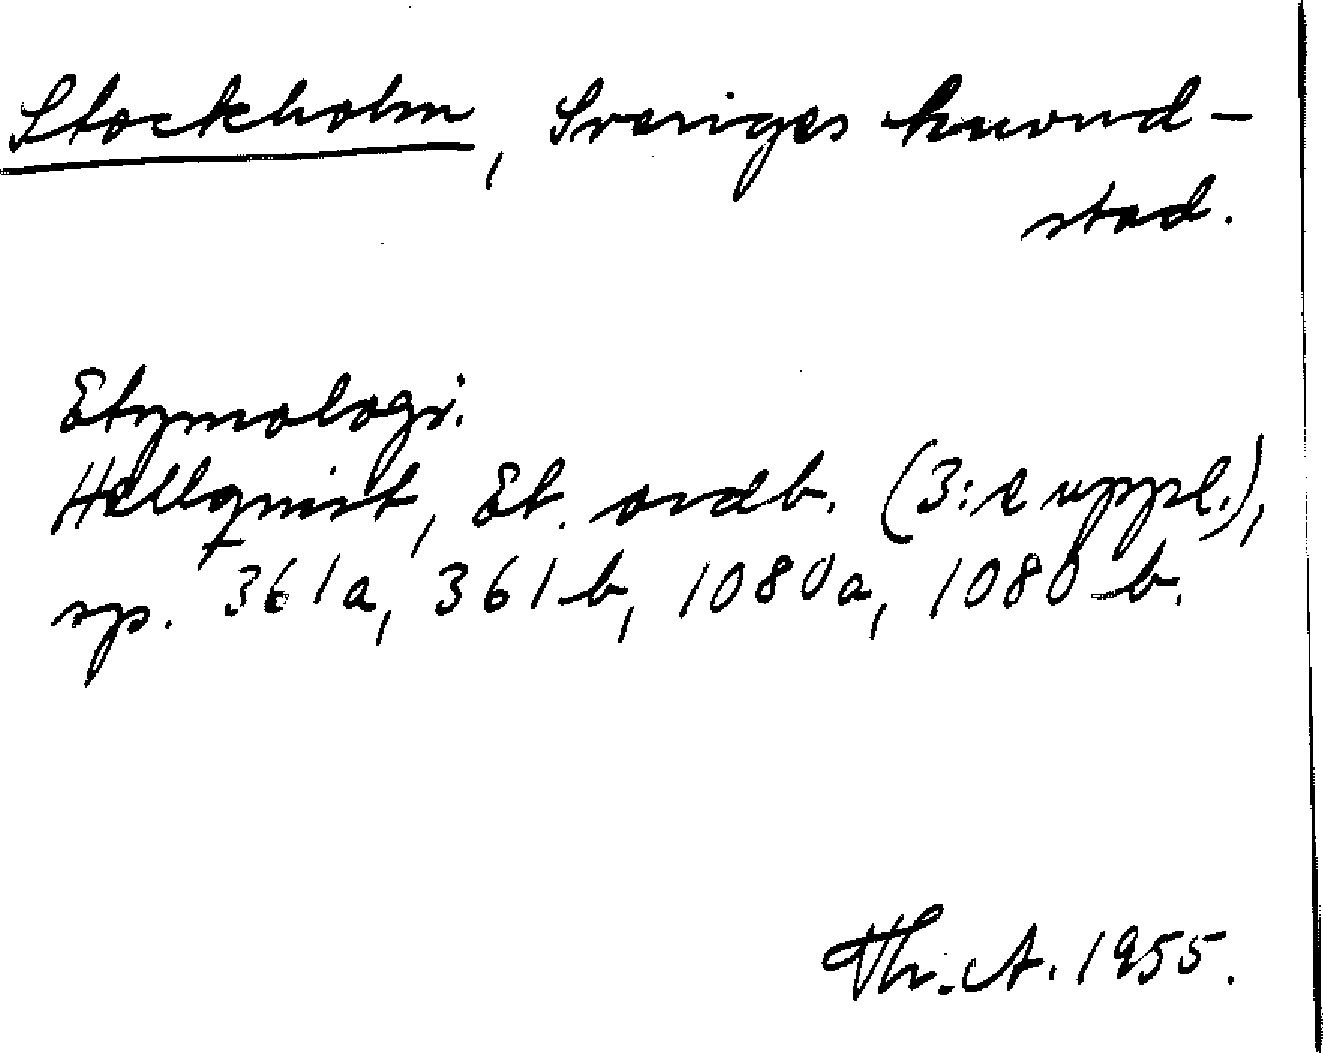 Stockholm, Sveriges huvud-
stad.
Etymologi.
Hellquist, Et. ordb. (3:e uppl.),
sp. 361a, 361b, 1080a, 1080b.
Th. A. 1955.